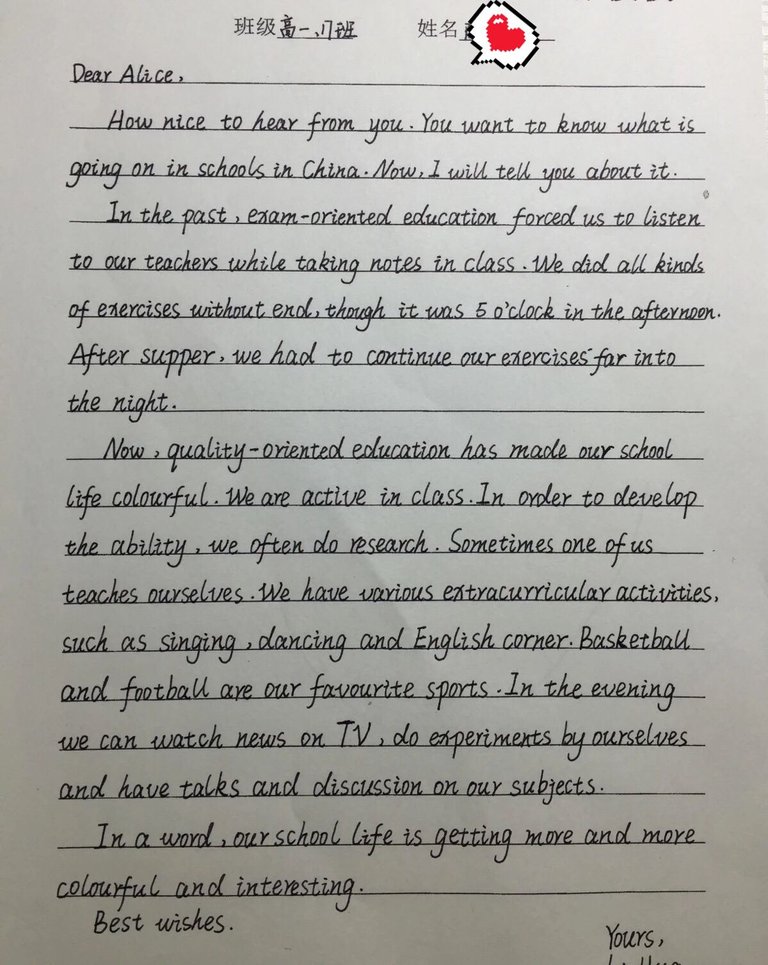 班级高一、17班 姓名
Dear Alice,
How nice to hear from you. You want to know what is
going on in schools in China. Now, I will tell you about it.
In the past, exam-oriented education forced us to listen
to our teachers while taking notes in class. We did all kinds
of exercises without end, though it was 5 o'clock in the afternoon.
After supper, we had to continue our exercises far into
the night.
Now, quality-oriented education has made our school
life colourful. We are active in class. In order to develop
the ability, we often do research. Sometimes one of us
teaches ourselves. We have various extracurricular activities,
such as singing, dancing and English corner. Basketball
and football are our favourite sports. In the evening
we can watch news on TV, do experiments by ourselves
and have talks and discussion on our subjects.
In a word, our school life is getting more and more
colourful and interesting.
Best wishes.
Yours,